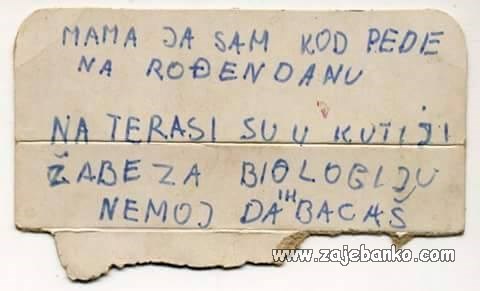 MAMA JA SAM KOD PEDE
NA ROĐENDANU
NA TERASI SU U KUTIJI
ŽABE ZA BIOLOGIJU
NEMOJ DA IH BACAŠ
www.zajebanko.com